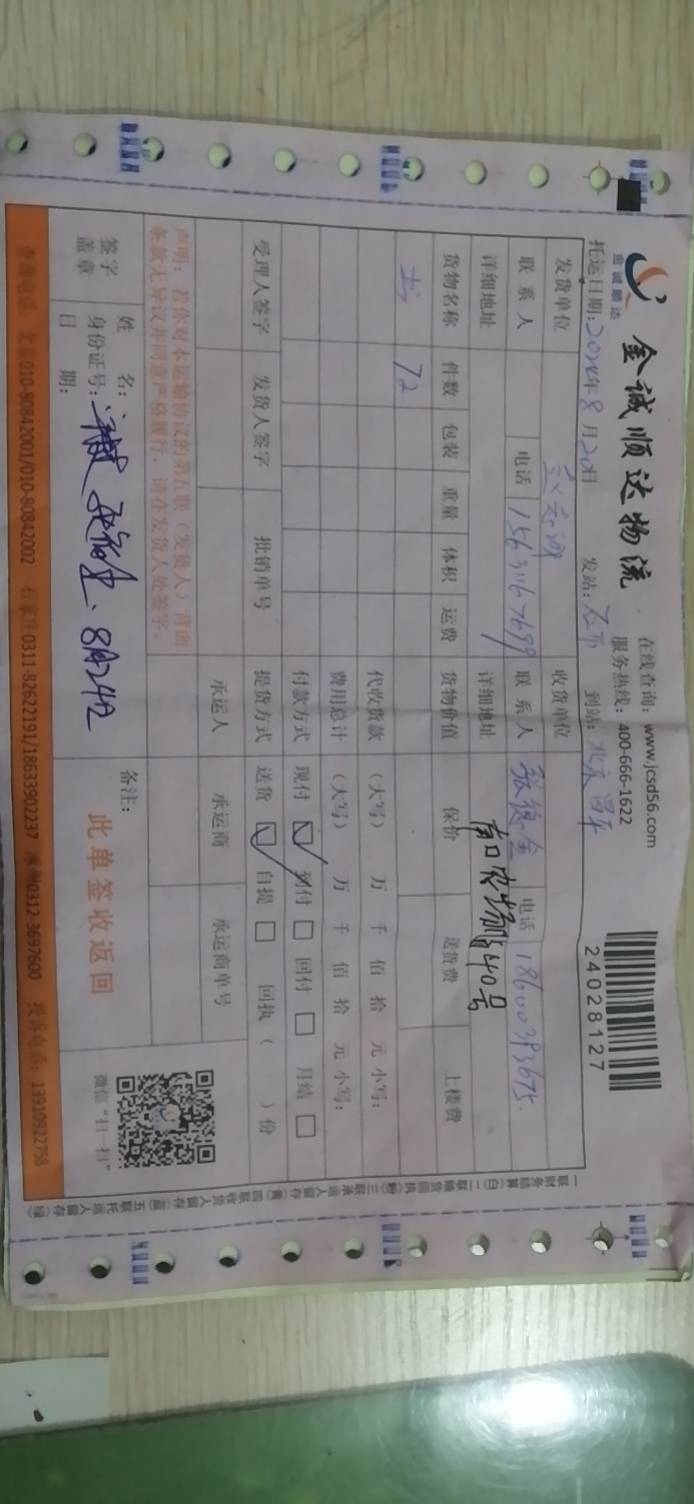 金诚顺达
金诚顺达物流
在线查询：www.jcsd56.com
服务热线：400-666-1622
24028127
托运日期：2024年8月20日 发站： 到站：北京昌平
发货单位 收货单位
联系人 电话 15631167699 联系人 张德全 电话 18600393675
详细地址 详细地址 南口农场 40号
货物名称 件数 包装 重量 体积 运费 货物价值 保价 送货费 上楼费
书 72
代收货款 （大写） 万 仟 佰 拾 元 小写：
费用总计 （大写） 万 仟 佰 拾 元 小写：
付款方式 现付 ☑ 到付 □ 回付 □ 月结 □
受理人签字 发货人签字 批销单号 提货方式 送货 ☑ 自提 □ 回执（ ）份
承运人 承运商 承运商单号
声明：若你对本运输协议的第五联（发货人）背面
条款无异议并同意严格履行，请在发货人处签字。
签字
盖章
姓 名：
身份证号：
日 期：
8月24日
备注：
此单签收返回
微信“扫一扫”
查询电话：北京010-80842001/010-80842002 石家庄0311-82622191/18633902237 0312 3697600 投诉电话：13910922758
一联财务结算(白) 二联随货回执(粉) 三联承运人留存(黄) 四联收货人留存(蓝) 五联托运人留存(绿)